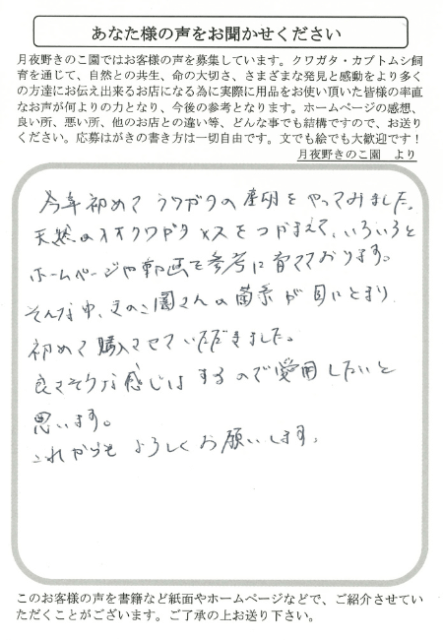 あなた様の声をお聞かせください
月夜野きのこ園ではお客様の声を募集しています。クワガタ・カブトムシ飼
育を通じて、自然との共生、命の大切さ、さまざまな発見と感動をより多く
の方達にお伝え出来るお店になる為に実際に用品をお使い頂いた皆様の率直
なお声が何よりの力となり、今後の参考となります。ホームページの感想、
良い所、悪い所、他のお店との違い等、どんな事でも結構ですので、お送り
ください。応募はがきの書き方は一切自由です。文でも絵でも大歓迎です！
月夜野きのこ園　より
今年初めて クワガタの産卵をやってみました。
天然のオオクワガタ メスをつかまえて、いろいろと
ホームページや動画を参考に育てております。
そんな中、きのこ園さんの菌糸が目にとまり
初めて購入させていただきました。
良さそうな感じはするので愛用したいと
思います。
これからも よろしくお願いします。
このお客様の声を書籍など紙面やホームページなどで、ご紹介させてい
ただくことがございます。ご了承の上お送り下さい。